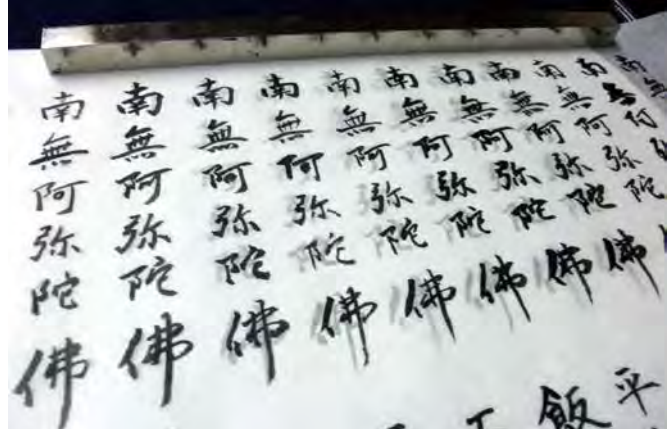 南無
南無阿弥
南無阿弥陀
南無阿弥陀佛
南無阿弥陀佛
南無阿弥陀佛
南無阿弥陀佛
南無阿弥陀佛
南無阿弥陀佛
南無阿弥陀佛
南無阿弥陀佛
平
飯